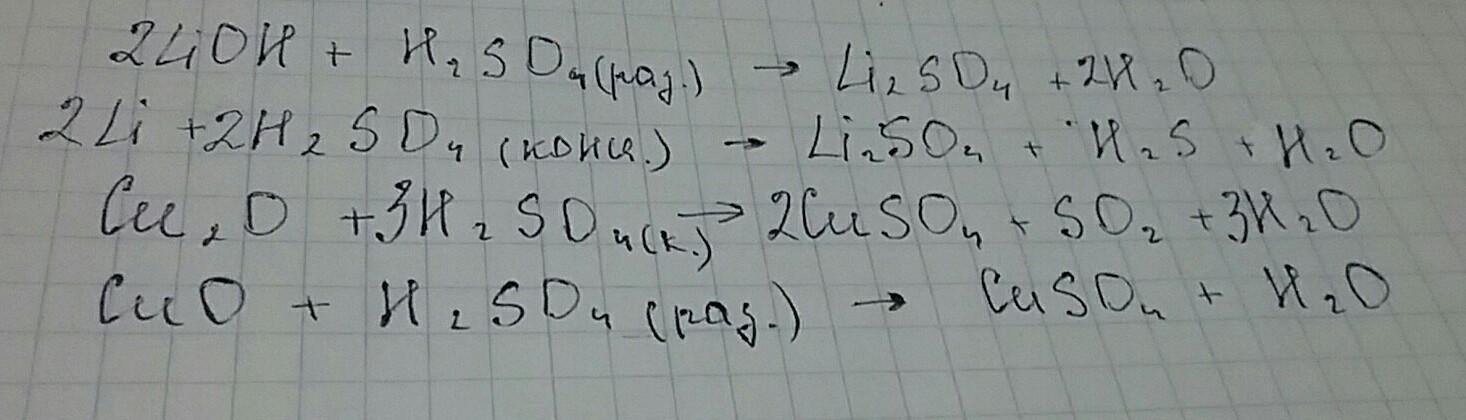 2LiOH + H₂SO₄(раз.) → Li₂SO₄ + 2H₂O
2Li + 2H₂SO₄ (конц.) → Li₂SO₄ + H₂S + H₂O
Cu₂O + 3H₂SO₄(к.) → 2CuSO₄ + SO₂ + 3H₂O
CuO + H₂SO₄ (раз.) → CuSO₄ + H₂O